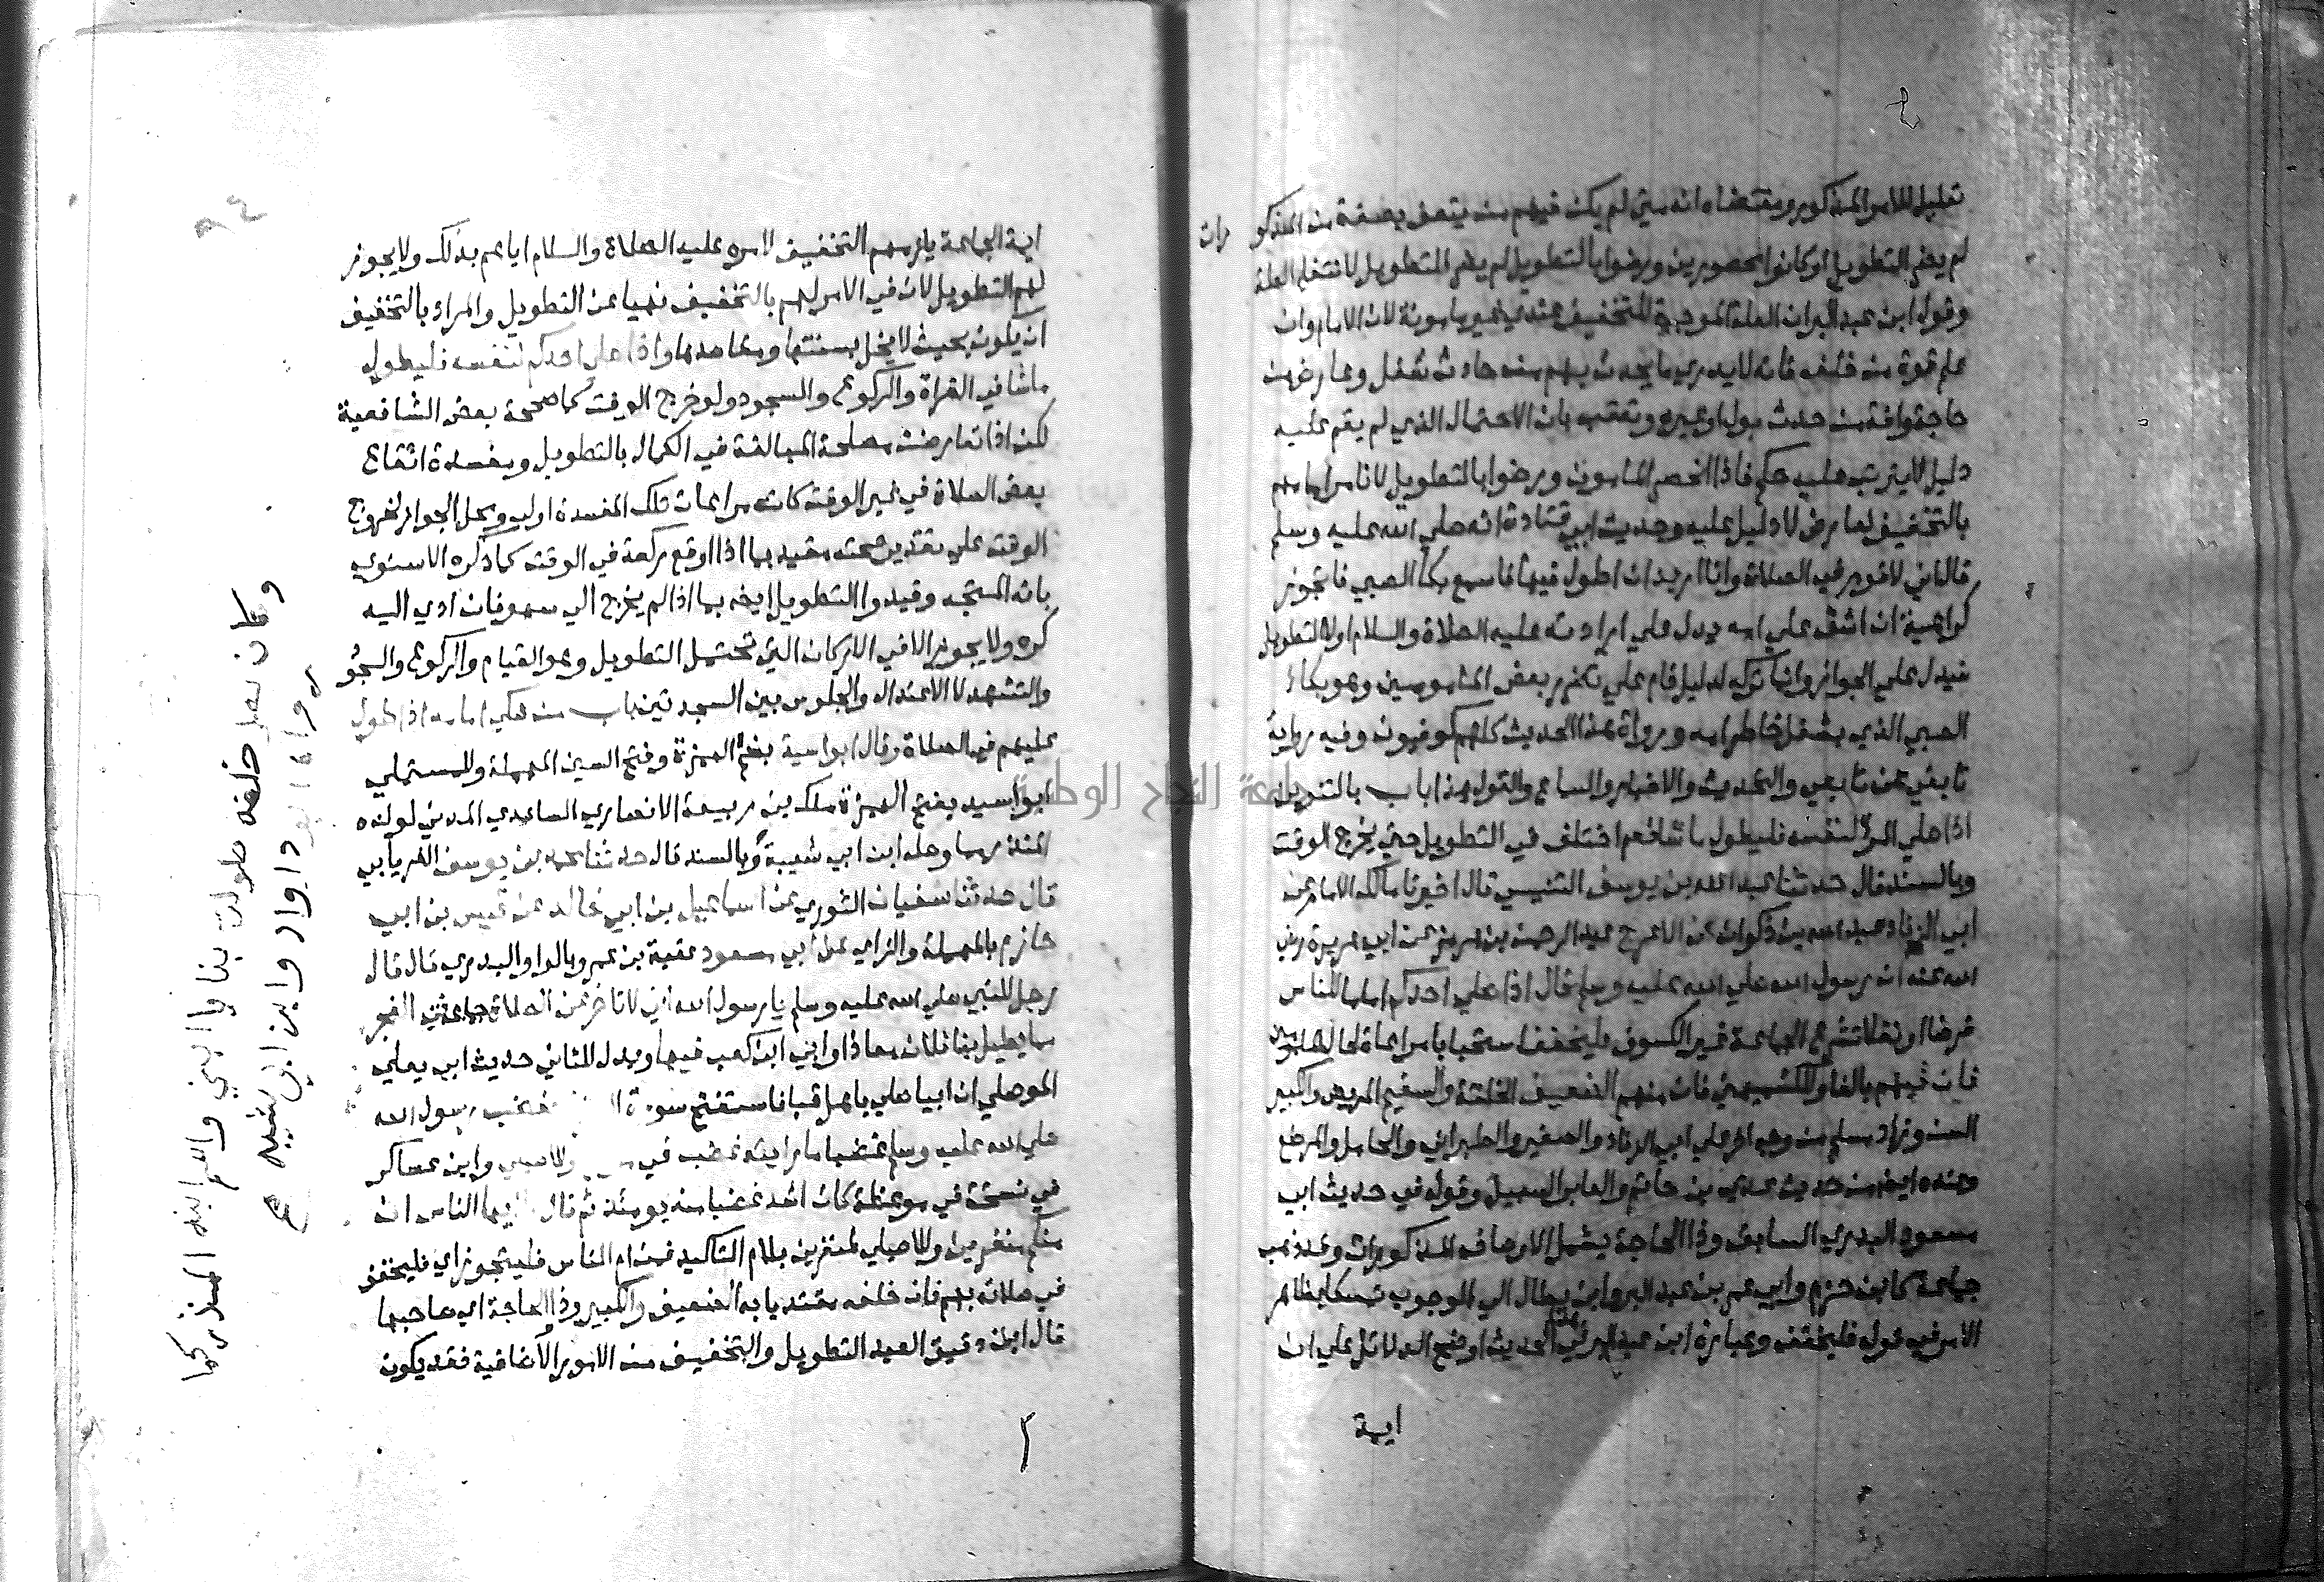 تعليل للامر المذكور ومقتضاه انه متي لم يكن فيهم من يتصف بصفة من المذكو رات
لم يضر التطويل او كانوا محصورين ورضوا بالتطويل لم يضر التطويل لانتفا العلة
وقول ابن عبد البر ان العلة الموجبة للتخفيف عندي غير مامونة لان الامام وان
علم قوة من خلفه فانه لا يدري ما يحدث بهم من حادث شغل وعارض من
حاجة وافة من حدث بول او غيره وتعقب بان الاحتمال الذي لم يقم عليه
دليل لا يترتب عليه حكم فاذا انحصر المامومون ورضوا بالتطويل لا نامر امامهم
بالتخفيف لعارض لا دليل عليه وحديث ابي قتادة انه صلي الله عليه وسلم
قال اني لاقوم في الصلاة وانا اريد ان اطول فيها فاسمع بكا الصبي فاتجوز
كراهية ان اشق علي امه يدل علي ارادته عليه الصلاة والسلام اولا التطويل
فيدل علي الجواز وانما تركه لدليل قام علي تضرر بعض المامومين وهو بكاء
الصبي الذي يشغل خاطر امه ورواة هذا الحديث كلهم كوفيون وفيه رواية
تابعي عن تابعي والتحديث والاخبار والسماع والقول هذا باب بالتنوين
اذا صلي المرء لنفسه فليطول ما شا نعم اختلف في التطويل حتي يخرج الوقت
وبالسند قال حدثنا عبد الله بن يوسف التنيسي قال اخبرنا مالك الامام عن
ابي الزناد عبد الله بن ذكوان عن الاعرج عبد الرحمن بن هرمز عن ابي هريرة رضي
الله عنه ان رسول الله صلي الله عليه وسلم قال اذا صلي احدكم اماما للناس
فرضا او نفلا تشرع الجماعة فيه غير الكسوف فليخفف استحبابا مراعاة لحال المامومين
فان فيهم بالفا وللكشميهني فان منهم الضعيف الخلقة والسقيم المريض والكبير
السن وزاد مسلم من وجه اخر علي ابي الزناد والصغير والطبراني والحامل والمرضع
وعنده ايضا من حديث عدي بن حاتم والعابر السبيل وقوله في حديث ابي
مسعود البدري السابق وذا الحاجة يشمل الاوصاف المذكورات وقد ذهب
جماعة كابن حزم وابي عمر بن عبد البر وابن بطال الي الوجوب تمسكا بظاهر
الامر في قوله فليخفف وعبارة ابن عبد البر في هذا الحديث اوضح الدلائل علي ان
اية
اية الجماعة يلزمهم التخفيف لامره عليه الصلاة والسلام اياهم بذلك ولا يجوز
لهم التطويل لان في الامر لهم بالتخفيف نهيا عن التطويل والمراد بالتخفيف
ان يكون بحيث لا يخل بسننها ومقاصدها واذا صلي احدكم لنفسه فليطول
ما شا في القراة والركوع والسجود ولو خرج الوقت كما صححه بعض الشافعية
لكن اذا تعارضت مصلحة المبالغة في الكمال بالتطويل ومفسدة ايقاع
بعض الصلاة في غير الوقت كانت مراعات تلك المفسدة اولي ومحل الجواز لخروج
الوقت علي تقدير صحته مقيد بما اذا اوقع ركعة في الوقت كما ذكره الاسنوي
بانه المتجه وقيدوا التطويل ايضا بما اذا لم يخرج الي سهو فان ادي اليه
كره ولا يجوز الا في الاركان التي تحتمل التطويل وهو القيام والركوع والسجو
والتشهد لا الاعتدال والجلوس بين السجدتين باب من شكي امامه اذا طول
عليهم في الصلاة وقال ابو اسيد بضم الهمزة وفتح السين المهملة وللمستملي
ابو اسيد بفتح الهمزة ملك بن ربيعة الانصاري الساعدي المدني لولده
المنذر مما وصله ابن ابي شيبة وبالسند قال حدثنا محمد بن يوسف الفريابي
قال حدثنا سفيان الثوري عن اسماعيل بن ابي خالد عن قيس بن ابي
حازم بالمهملة والزاي عن ابي مسعود عقبة بن عمرو بالواو البدري قال قال
رجل للنبي صلي الله عليه وسلم يا رسول الله اني لاتاخر عن الصلاة جماعة في الفجر
مما يطيل بنا فلان معاذ او ابي ابن كعب فيها ويدل للثاني حديث ابي يعلي
الموصلي ان ابيا صلي باهل قبا فاستفتح سورة فغضب رسول الله
صلي الله عليه وسلم غضبا ما رايته غضب في وللاصيلي وابن عساكر
في نسخة في موعظة كان اشد غضبا منه يومئذ ثم قال ايها الناس ان
منكم منفرين وللاصيلي لمنفرين بلام التاكيد فمن ام الناس فليتجوز اي فليخفف
في صلاته بهم فان خلفه مقتديا به الضعيف والكبير وذا الحاجة اي صاحبها
قال ابن دقيق العيد التطويل والتخفيف من الامور الاضافية فقد يكون
وكان يصلي خلفه طولت بنا يا بني واسم ابنه المنذر كما
رواه ابو داود وابن ابي شيبه صح
جامعة النجاح الوطنية